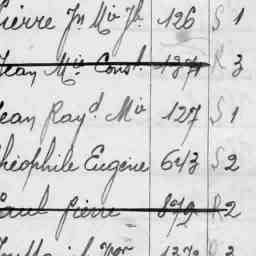 Pierre Jn Mie Jh 126 S 1
Jean Mie Const. 1371 R 3
Jean Rayd Mie 127 S 1
Théophile Eugène 643 S 2
Paul Pierre 892 R 2